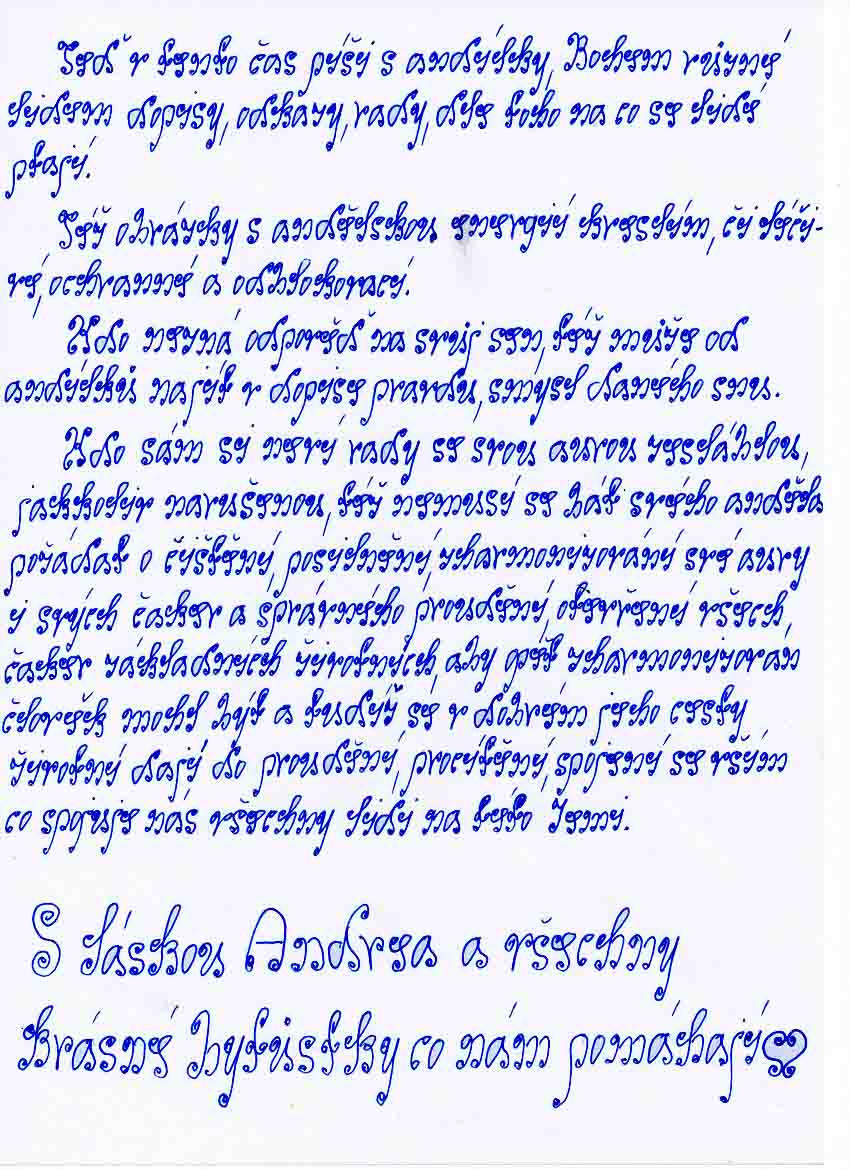 Teď v tento čas píši s andílky, Bohem různé
lidem dopisy, odkazy, rady, dle toho na co se lidé
ptají.
Též obrázky s andělskou energií kreslím, či léči-
vé, ochranné a odblokovací.
Kdo nezná odpověď na svůj sen, též může od
andílků najít v dopise pravdu, smysl daného snu.
Kdo sám si neví rady se svou aurou zesláblou,
jakkoliv narušenou, též nemusí se bát svého anděla
požádat o čištění, posilnění, zharmonizování své aury
i svých čaker a správného proudění, otevření všech
čaker základních životních, aby pět zharmonizován
človeěk mohl být a tudíž sé v dobrém jeho cesty
životní dají do proudění, procítění, spojení se vším
co spojuje nás všechny lidi na této Zemi.
S láskou Andrea a všechny
krásné bytůstky co nám pomáhají